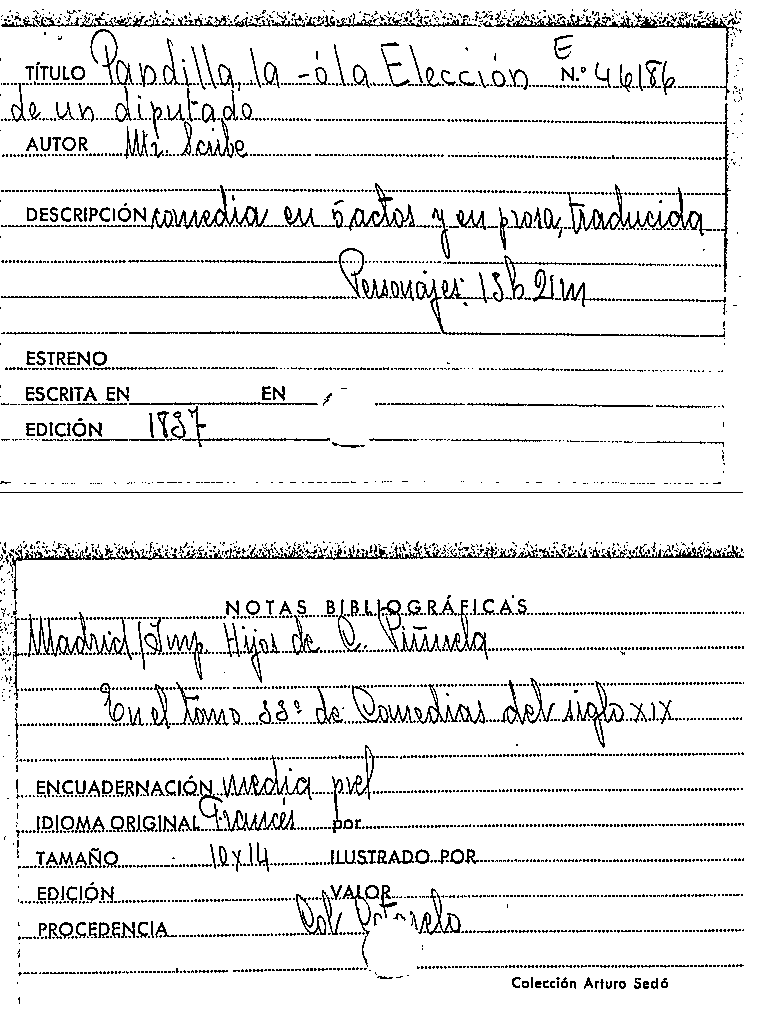 E
TÍTULO Pandilla, la - ó la Elección N.º 46186
de un diputado
AUTOR Mr. Scribe
DESCRIPCIÓN comedia en 5 actos y en prosa, traducida
Personajes: 15h 21m
ESTRENO
ESCRITA EN EN
EDICIÓN 1837
NOTAS BIBLIOGRÁFICAS
Madrid/Imp. Hijos de C. Piñuela
En el tomo 33º de Comedias del siglo XIX
ENCUADERNACIÓN media piel
IDIOMA ORIGINAL Francés por
TAMAÑO 10x14 ILUSTRADO POR
EDICIÓN VALOR
PROCEDENCIA Col. Cotarelo
Colección Arturo Sedó